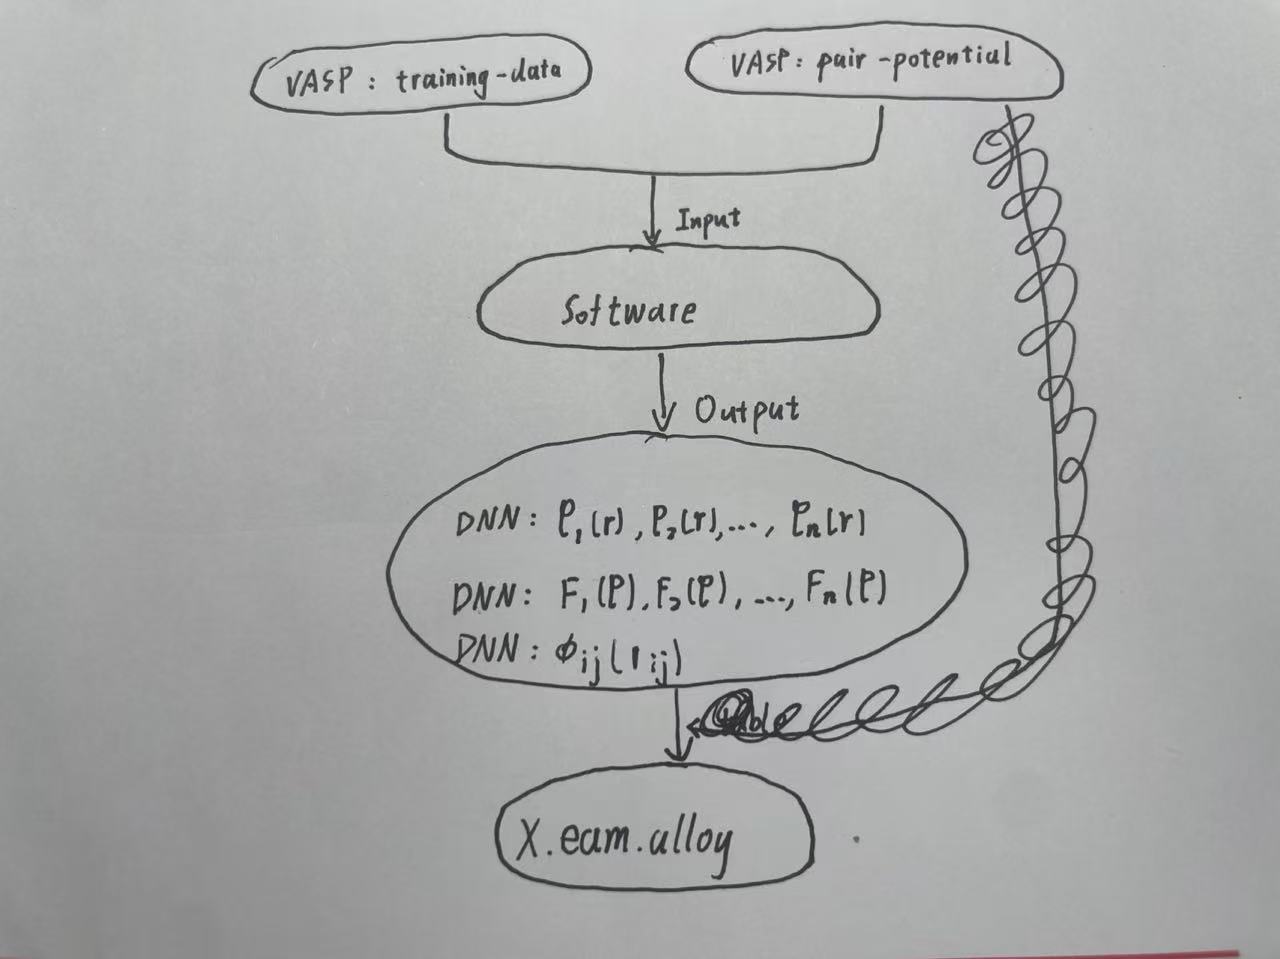 VASP: training-data
VASP: pair-potential
Input
Software
Output
DNN: ρ₁(r), ρ₂(r), ..., ρₙ(r)
DNN: F₁(ρ), F₂(ρ), ..., Fₙ(ρ)
DNN: ϕᵢⱼ(rᵢⱼ)
X.eam.alloy